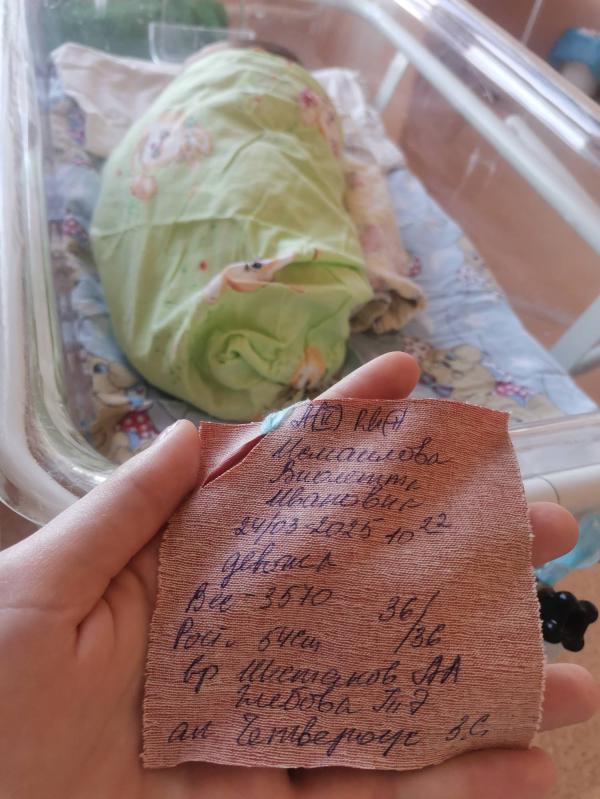 A(II) Rh(+)
Исмаилова
Виолетта
Ивановна
24/03-2025 10 22
девочка
Вес - 3570 36/
Рост - 54см /36
вр Шестаков АА
Глебова Т.Э
ак Четвероус З.С.